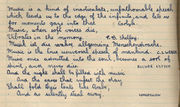 Music is a kind of inarticulate, unfathomable speech
which leads us to the edge of the infinite, and lets us
for moments gaze into that. Carlyle
Music, when soft voices die,
Vibrates in the memory. P. B. Shelley.
Music is the universal speech of mankind. LONGFELLOW
Music once admitted to the soul, becomes a sort of
spirit, and never dies. BULWER LYTTON
And the night shall be filled with music
And the cares that infest the day
Shall fold their tents like Arabs,
And as silently steal away. LONGFELLOW